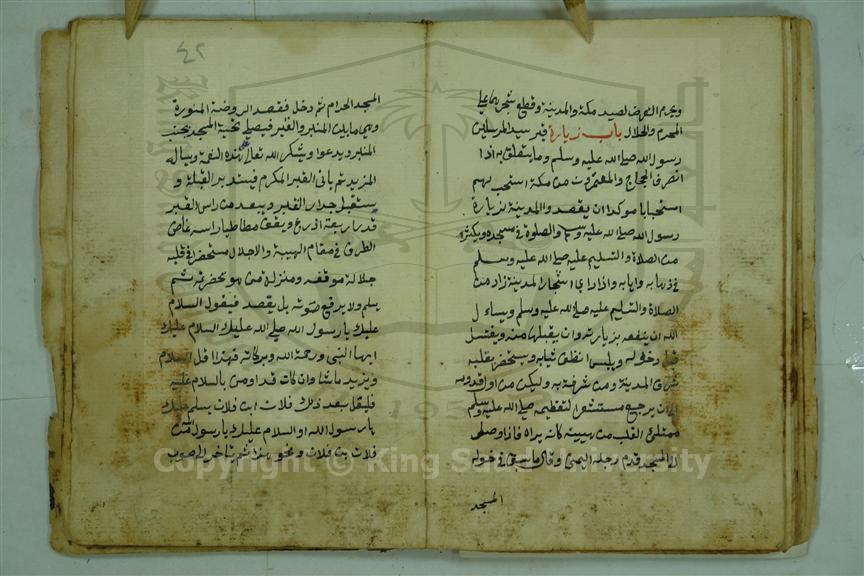 ويحرم التعرض لصيد مكة والمدينة وقطع شجرهما على
المحرم والحلال باب زيارة قبر سيد المرسلين
رسول الله صلى الله عليه وسلم وما يتعلق به اذا
انصرف الحجاج والمعتمرون من مكة استحب لهم
استحبابا موكدا ان يقصدوا المدينة لزيارة
رسول الله صلى الله عليه وسلم والصلوة في مسجده ويكثر
من الصلاة والتسليم عليه صلى الله عليه وسلم
في ذهابه وايابه واذا راى اشجار المدينة زاد من
الصلاة والتسليم عليه صلى الله عليه وسلم ويسال
الله ان ينفعه بزيارته وان يقبلها منه ويغتسل
قبل دخوله ويلبس انظف ثيابه ويستحضر بقلبه
شرف المدينة ومن شرفت به وليكن من اول قدومه
الى ان يرجع مستشعرا لتعظيمه صلى الله عليه وسلم
ممتلئ القلب من هيبته كانه يراه فاذا وصل
الى المسجد قدم رجله اليمنى وقال ما سبق في دخوله
المسجد
٤٢
المسجد الحرام ثم دخل فقصد الروضة المنورة
وهي ما بين المنبر والقبر فيصلي تحية المسجد بجنب
المنبر ويدعوا ويشكر الله تعالى على هذه النعمة ويساله
المزيد ثم ياتي القبر المكرم فيستدبر القبلة و
يستقبل جدار القبر ويبعد من راس القبر
قدر اربعة اذرع ويقف مطاطيا راسه غاض
الطرف في مقام الهيبة والاجلال مستحضرا في قلبه
جلالة موقفه ومنزلة من هو بحضرته ثم
يسلم ولا يرفع صوته بل يقصد فيقول السلام
عليك يا رسول الله صلى الله عليك السلام عليك
ايها النبي ورحمة الله وبركاته فهذا اقل السلام
ويزيد ما شا وان كان قد اوصي بالسلام عليه
فليقل بعد ذلك فلان ابن فلان يسلم عليك
يا رسول الله او السلام عليك يا رسول الله من
فلان بن فلان ونحو هذا ثم يتاخر الى صوب
Copyright © King Saud University
1957